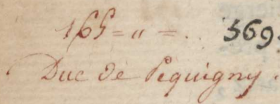 165 = " = .. 569.
Duc de Pequigny.